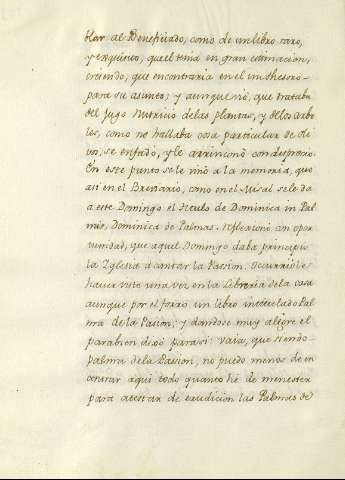 blar al Beneficiado, como de un libro raro,
y exquisito, que el tenia en gran estimacion,
creiendo, que encontraria en el un thesoro
para su asumto; y aunque vió, que trataba
del Jugo Nutricio de las plantas, y de los arbo
les, como no hallaba cosa particular de oli
vos, se enfadó, y le arrinconó con desprecio.
En este punto se le vino a la memoria, que
asi en el Breviario, como en el Misal se le da
a este Domingo el titulo de Dominica in Pal
mis, Dominica de Palmas. Reflexionó con opor
tunidad, que aquel Domingo daba principio
la Iglesia á cantar la Pasion. Ocurriole
haver visto una vez en la Libreria de la casa
aunque por el forro un libro intitulado Pal
ma de la Pasion; y dandose muy alegre el
parabien dixó para si: vaia, que siendo
palma de la Passion, no puedo menos de en
contrar aqui todo quanto hé de menester
para atestar de erudicion las Palmas de